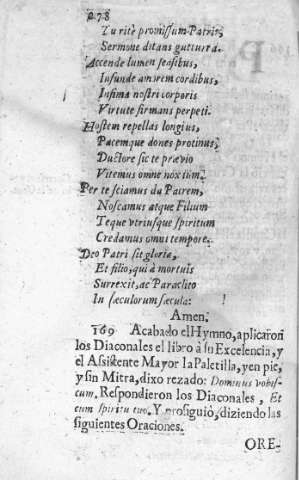 278
Tu ritè promissum Patris,
Sermone ditans guttura.
Accende lumen sensibus,
Infunde amorem cordibus,
Infima nostri corporis
Virtute firmans perpeti.
Hostem repellas longius,
Pacemque dones protinus,
Ductore sic te prævio
Vitemus omne noxium.
Per te sciamus da Patrem,
Noscamus atque Filium
Teque vtriusque spiritum
Credamus omni tempore.
Deo Patri sit gloria,
Et filio, qui à mortuis
Surrexit, ac Paraclito
In sæculorum sæcula:
Amen.
169 Acabado el Hymno, aplicaron
los Diaconales el libro à su Excelencia, y
el Assistente Mayor la Paletilla, y en pie,
y sin Mitra, dixo rezado: Dominus vobis-
cum. Respondieron los Diaconales, Et
cum spiritu tuo. Y prosiguiò, diziendo las
siguientes Oraciones.
ORE-